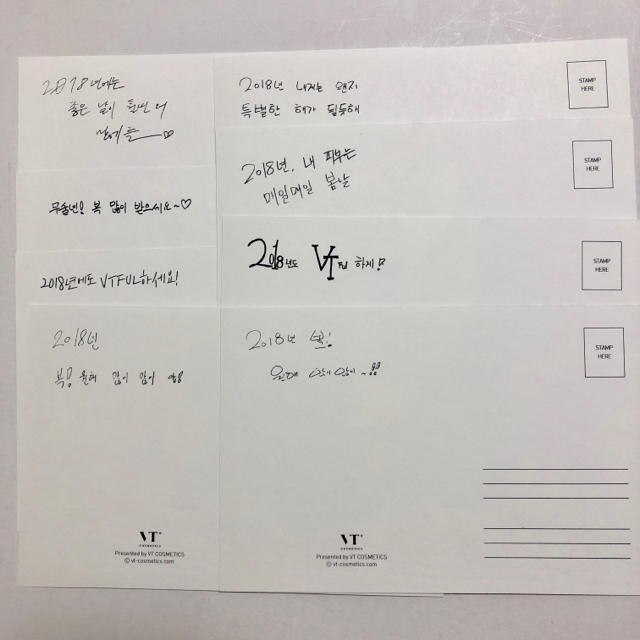 2018년에는
좋은 날이
2018년 내게는 왠지
특별한 해가 될듯해
STAMP
HERE
2018년, 내 피부는
매일매일 봄날
STAMP
HERE
무술년! 복 많이 받으시요~♡
2018년에도 VTFUL하세요!
2018년도 VT Ful 하게!
STAMP
HERE
2018년
복! 올해 많이 많이
2018년 복!
많이 많이~!!
STAMP
HERE
VT
COSMETICS
Presented by VT COSMETICS
ⓒ vt-cosmetics.com
VT
COSMETICS
Presented by VT COSMETICS
ⓒ vt-cosmetics.com